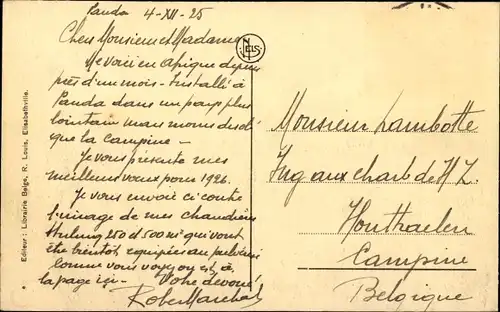 Panda 4-XII-25
Chers Monsieur et Madame
Me voici en Afrique depuis
près d'un mois - Installé à
Panda dans un pays plus
lointain mais moins désolé
que la Campine -
Je vous présente mes
meilleurs vœux pour 1926.
Je vous envoie ci contre
l'image de mes chaudières
250 et 500 m² qui vont
être bientôt équipées au pulvérisé
comme vous voyez on est à
la page ici - Votre dévoué
Rob Marchal
NELS
Monsieur Lambotte
Ing aux charb de H Z.
Houthaelen
Campine
Belgique
Editeur : Librairie Belge, R. Louis, Elisabethville.